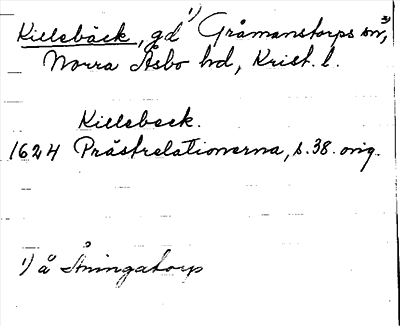 Killebäck, gd 1) Gråmanstorps sn, 3)
Norra Åsbo hd, Krist. l.
Killebeck.
1624 Prästrelationerna, s. 38. orig.
1) å Åningatorp